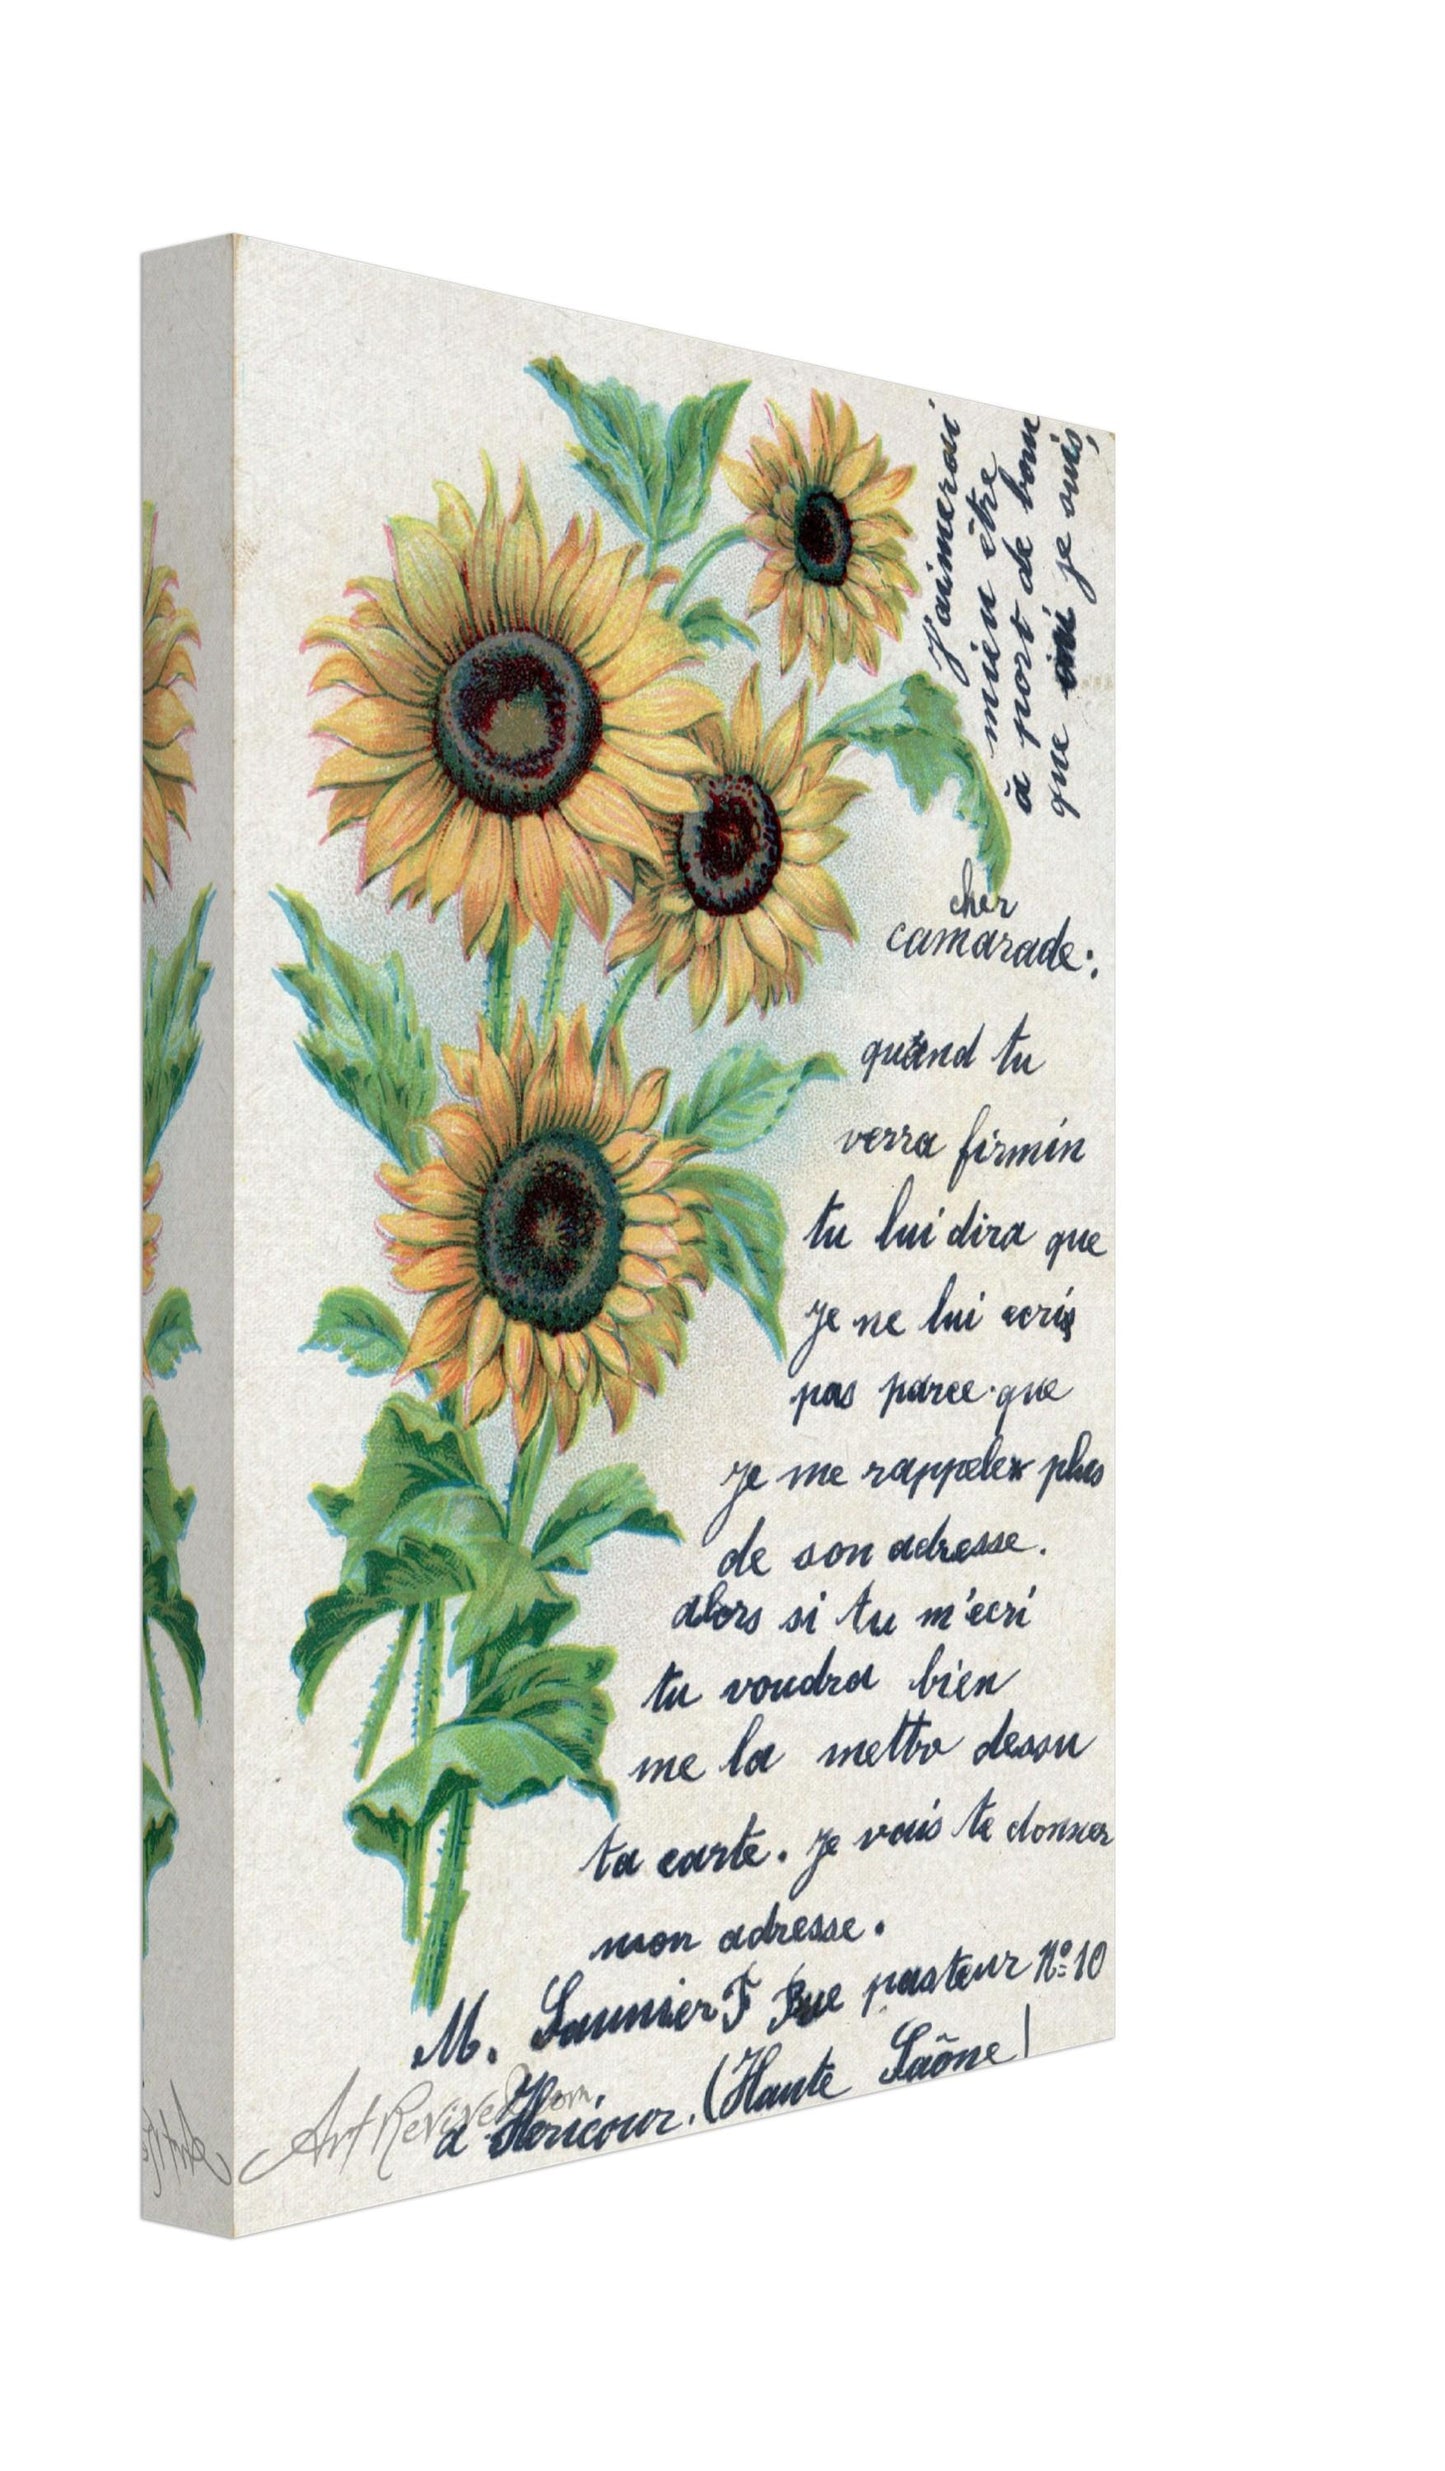 J'aimerai
mieu être
à port de bouc
que je suis,
cher
camarade:
quand tu
verra firmin
tu lui dira que
je ne lui ecris
pas parce-que
je me rappeler plus
de son adresse.
alors si tu m'ecri
tu voudra bien
me la mettre dessu
ta carte. je vais te donner
mon adresse.
M. Saunier F Rue pasteur No 10
a Hericour. (Haute Saône)
ArtRevived.com